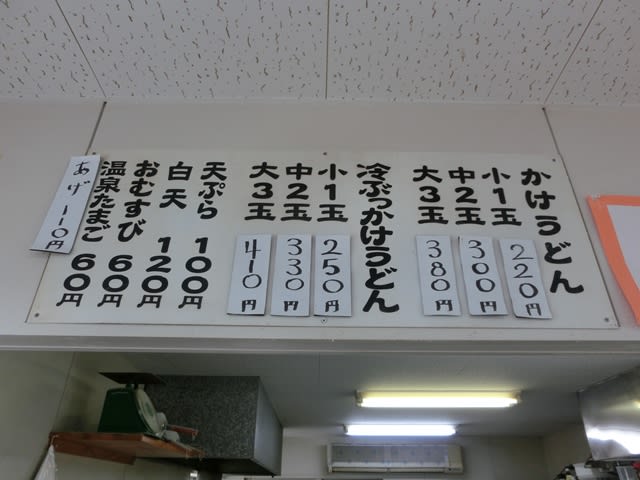 かけうどん
小1玉 220円
中2玉 300円
大3玉 380円
冷ぶっかけうどん
小1玉 250円
中2玉 330円
大3玉 410円
天ぷら 100円
白天 120円
おむすび 60円
温泉たまご 60円
あげ 110円